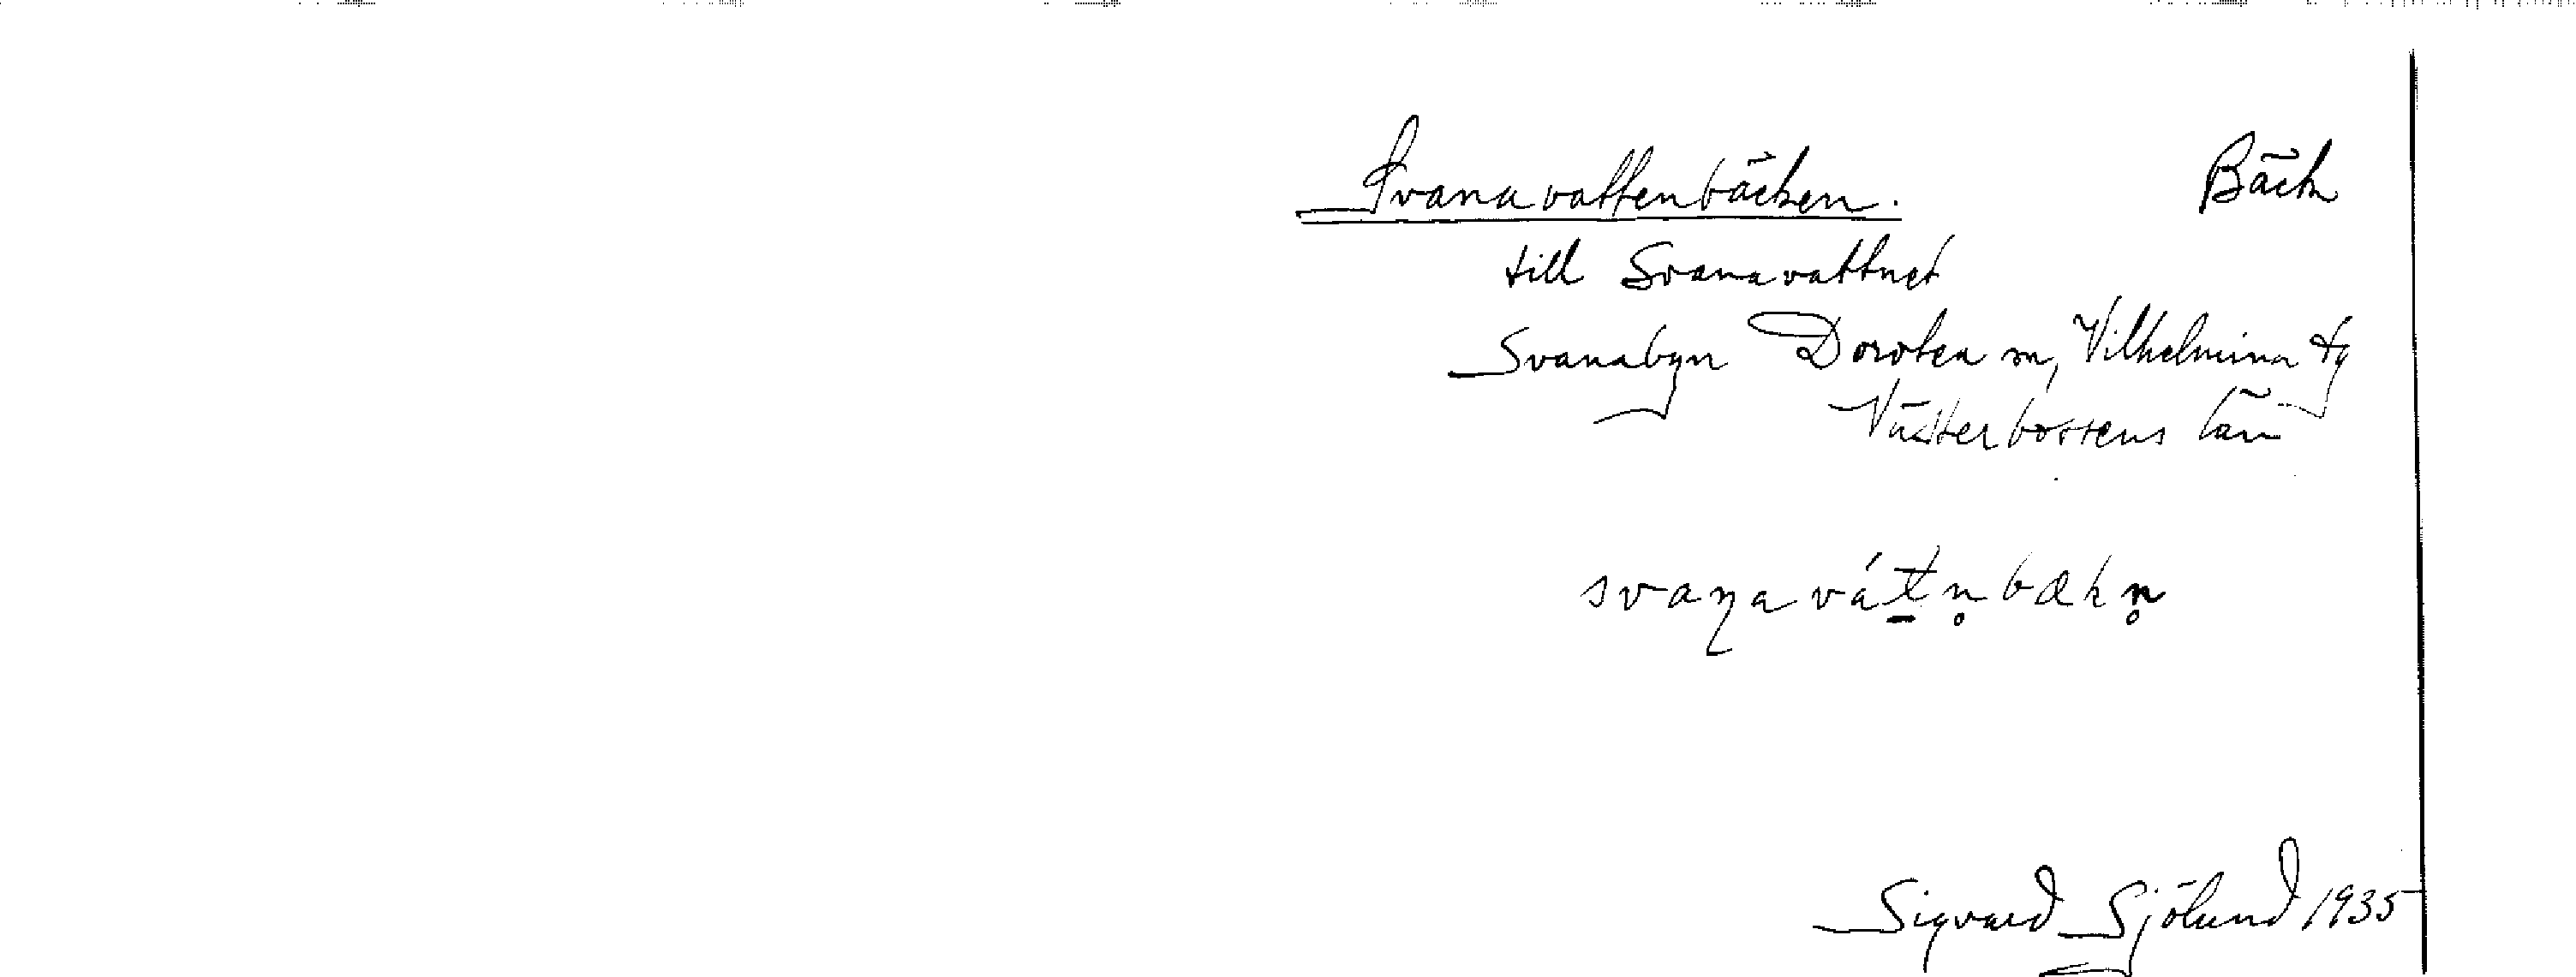 Svanavattenbäcken. Bäck
till Svanavattnet
Svanabyn Dorotea sn, Vilhelmina tg
Västerbottens län
svaṉavát̲n̥bækn̥
Sigvard Sjölund 1935